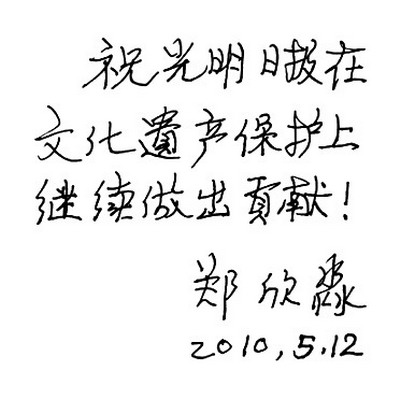 祝光明日报在
文化遺产保护上
继续做出貢献！
郑欣淼
2010.5.12